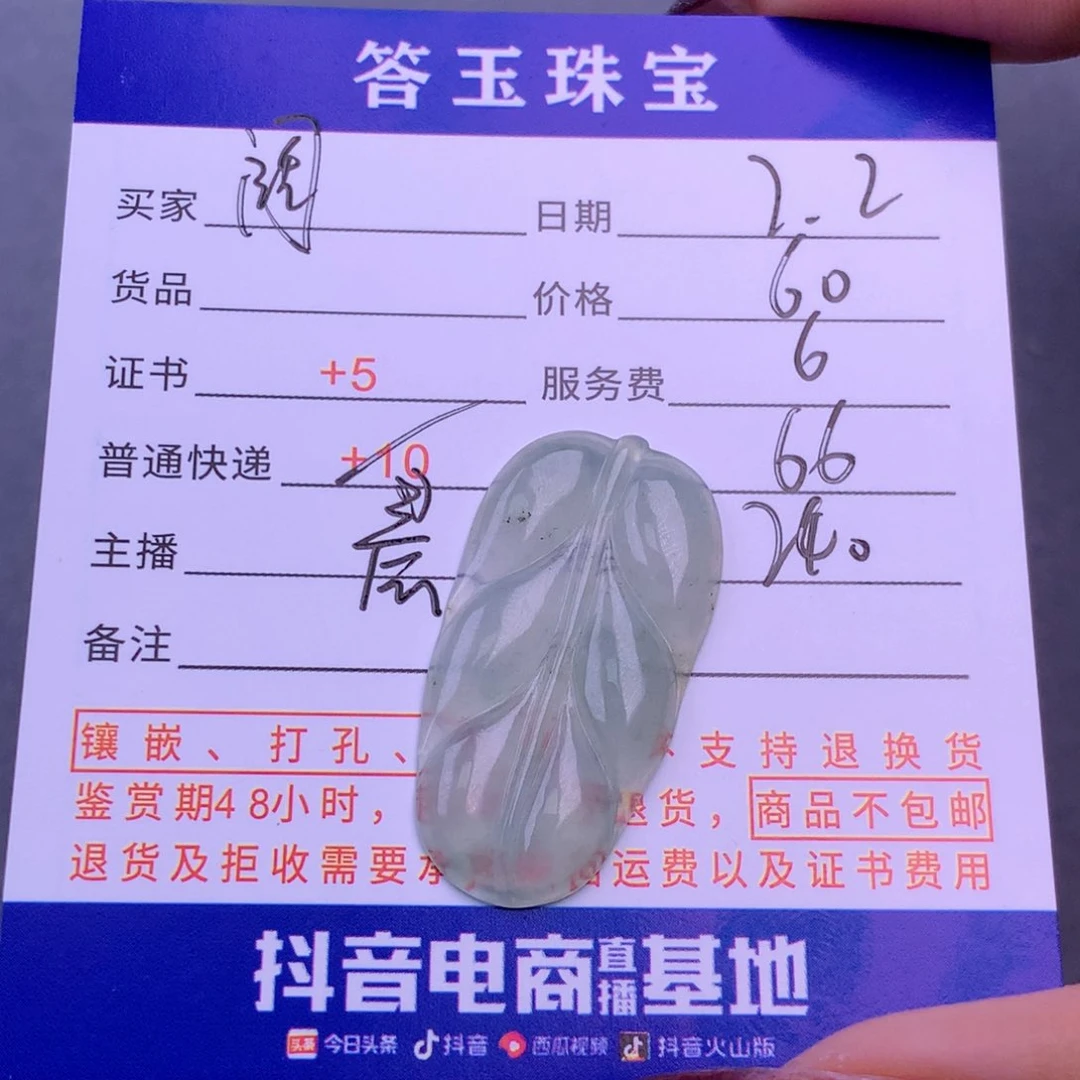 答玉珠宝
买家 日期 2.2
货品 价格 60
证书 +5 服务费 6
普通快递 +10 66
主播
备注
镶嵌、打孔、 支持退换货
鉴赏期48小时， 退货，商品不包邮
退货及拒收需要承 运费以及证书费用
抖音电商直播基地
头条 今日头条 抖音 西瓜视频 抖音火山版